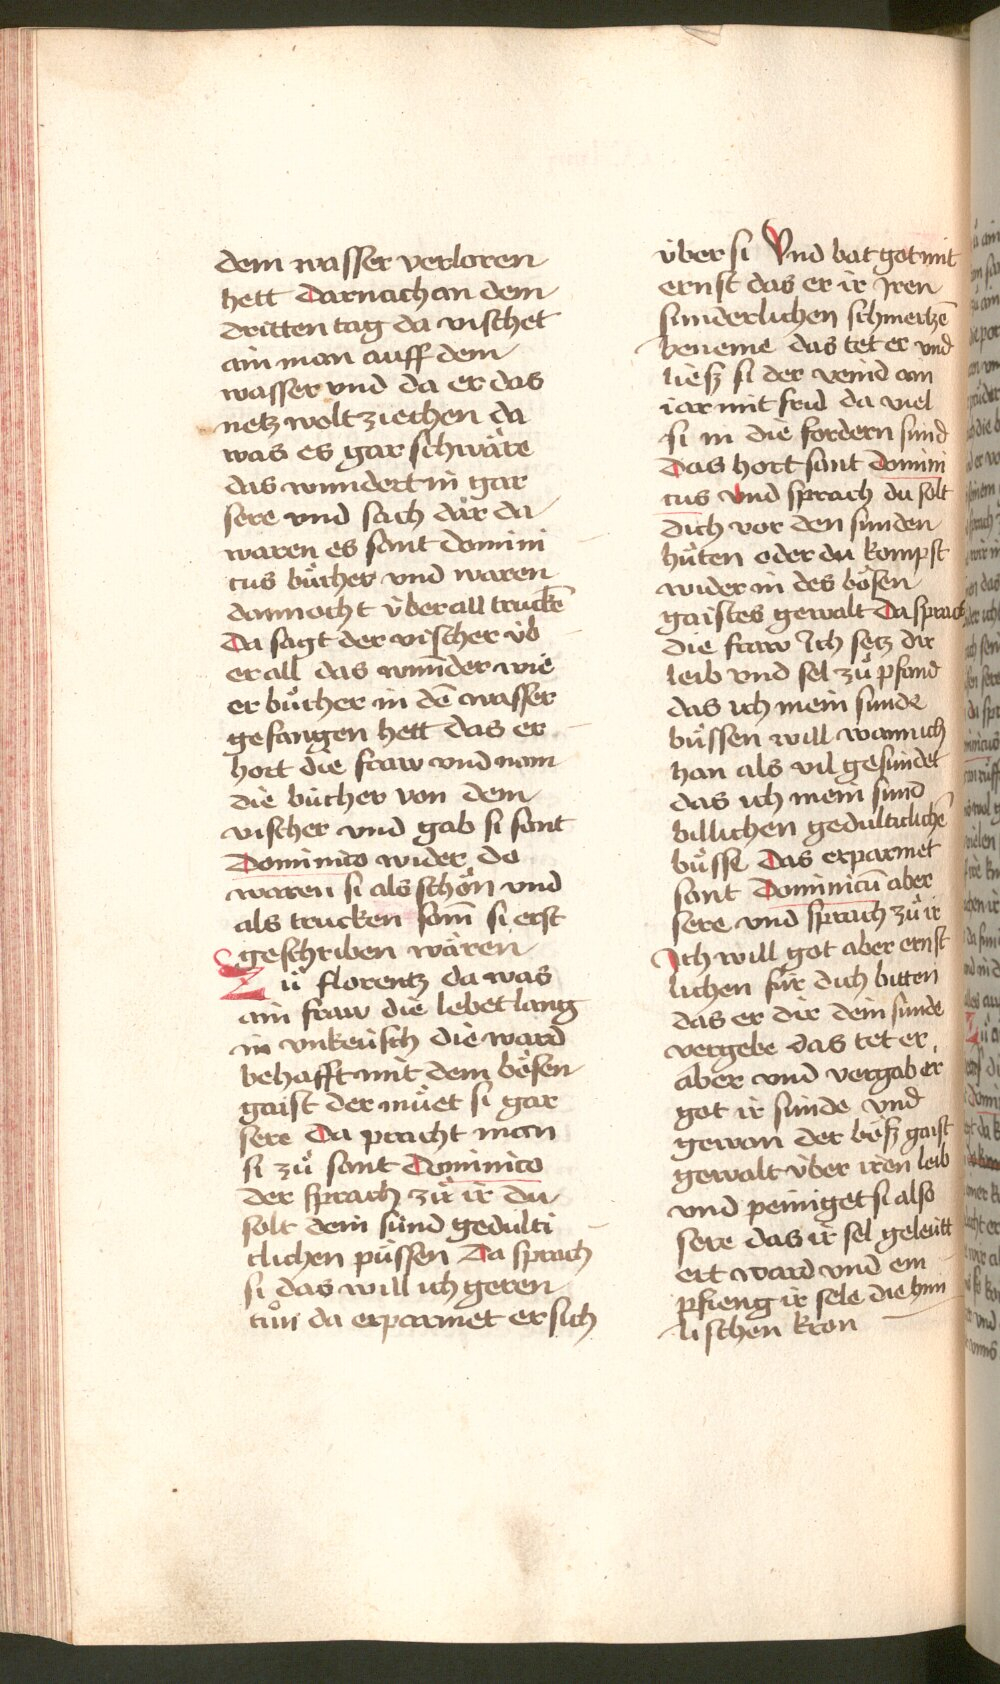 dem wasser verloren
hett Darnach an dem
dritten tag da vischet
ain man auff dem
wasser vnd da er das
netz wolt ziechen da
was es gar schwäre
das wundert in gar
sere vnd sach dar da
waren es sant domini
cus bu̍cher vnd waren
dannocht v̈ber all truckē
Da sagt der vischer v̈b
er all das wunder wie
er bůcher in dē wasser
gefangen hett das er
hort die fraw vnd nam
die bücher von dem
vischer vnd gab si sant
Dominico wider do
waren si als schön vnd
als trucken sam̄ si erst
geschriben wären
Zů florentz da was
ain fraw die lebet lang
in vnkeüsch die ward
behafft mit dem bösen
gaist der müet si gar
sere Da pracht man
si zů sant Dominico
der sprach zů ir du
solt dein sünd gedulti
clichen püssen Da sprach
si das will ich geren
tůn da erparmet er sich
v̈ber si Vnd bat got mit
ernst das er ir Iren
sunderlichen schmertzē
beneme das tet er vnd
liesz si der veind am
iar mit frid da viel
si in die fordern sünd
Das hort sant domini
cus Vnd sprach du solt
dich vor den sünden
hüten oder du kompst
wider in des bösen
gaistes gewalt Da sprach
die fraw Ich setz dir
leib vnd sel zů pfand
das ich mein sünde
büssen will wann ich
han als vil gesündet
das ich mein sünd
billichen gedulticlichē
büsse Das erparmet
sant Dominicū aber
sere vnd sprach zů ir
Ich will got aber ernst
lichen für dich bitten
das er dir dein sünde
vergebe das tet er
aber vnd vergab ir
got ir sünde vnd
gewan der bösz gaist
gewalt v̈ber iren leib
vnd peiniget si also
sere das ir sel geleütt
ert ward vnd em
pfieng ir sele die him
lischen kron